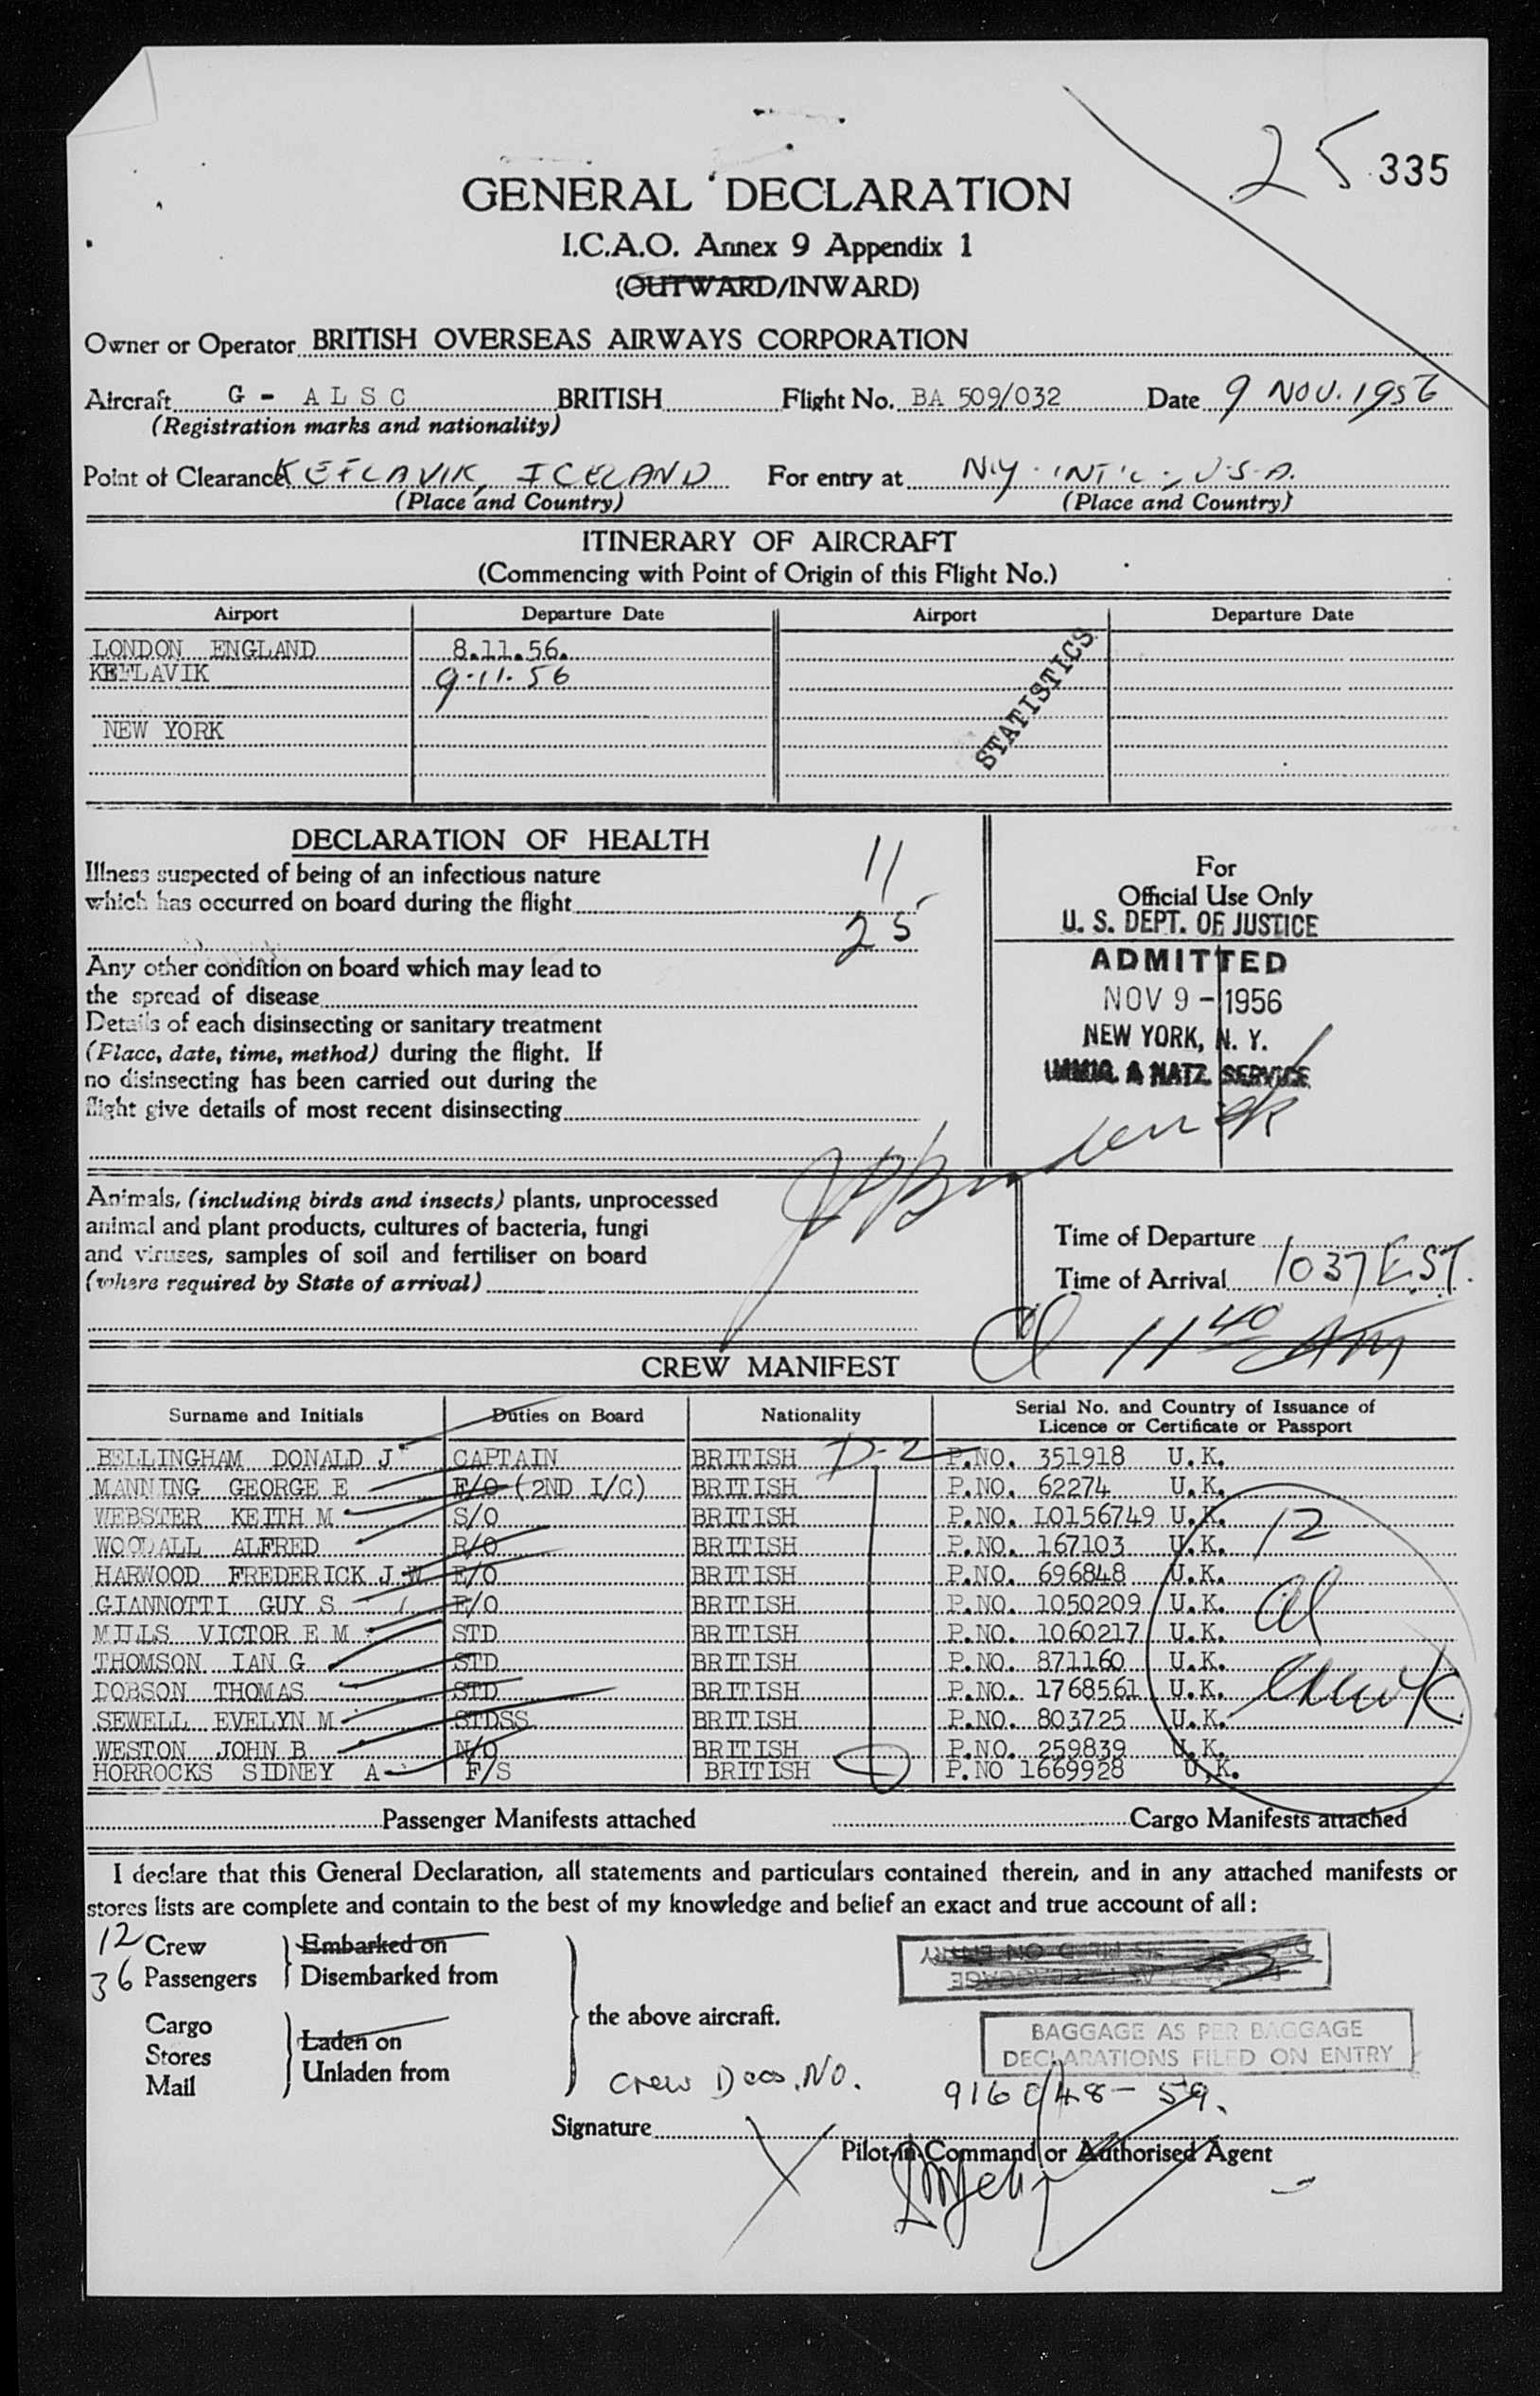 25 335
GENERAL DECLARATION
I.C.A.O. Annex 9 Appendix 1
(OUTWARD/INWARD)
Owner or Operator BRITISH OVERSEAS AIRWAYS CORPORATION
Aircraft G - ALSC BRITISH Flight No. BA 509/032 Date 9 NOV. 1956
(Registration marks and nationality)
Point of Clearance KEFLAVIK, ICELAND For entry at N.Y. INT'L, U.S.A.
(Place and Country) (Place and Country)
ITINERARY OF AIRCRAFT
(Commencing with Point of Origin of this Flight No.)
Airport Departure Date Airport Departure Date
LONDON ENGLAND 8.11.56.
KEFLAVIK 9.11.56
NEW YORK
STATISTICS
DECLARATION OF HEALTH
Illness suspected of being of an infectious nature
which has occurred on board during the flight
11
25
Any other condition on board which may lead to
the spread of disease
Details of each disinsecting or sanitary treatment
(Place, date, time, method) during the flight. If
no disinsecting has been carried out during the
flight give details of most recent disinsecting
For
Official Use Only
U. S. DEPT. OF JUSTICE
ADMITTED
NOV 9 - 1956
NEW YORK, N. Y.
IMMIG. & NATZ. SERVICE
Animals, (including birds and insects) plants, unprocessed
animal and plant products, cultures of bacteria, fungi
and viruses, samples of soil and fertiliser on board
(where required by State of arrival)
Time of Departure
Time of Arrival 1037 E.S.T.
11 40 AM
CREW MANIFEST
Surname and Initials Duties on Board Nationality Serial No. and Country of Issuance of
Licence or Certificate or Passport
BELLINGHAM DONALD J CAPTAIN BRITISH D-2 P.NO. 351918 U.K.
MANNING GEORGE E F/O (2ND I/C) BRITISH P.NO. 62274 U.K.
WEBSTER KEITH M S/O BRITISH P.NO. LO156749 U.K.
WOODALL ALFRED R/O BRITISH P.NO. 167103 U.K. 12
HARWOOD FREDERICK J W E/O BRITISH P.NO. 696848 U.K.
GIANNOTTI GUY S E/O BRITISH P.NO. 1050209 U.K.
MILLS VICTOR E M STD BRITISH P.NO. 1060217 U.K.
THOMSON IAN G STD BRITISH P.NO. 871160 U.K.
DOBSON THOMAS STD BRITISH P.NO. 1768561 U.K.
SEWELL EVELYN M STDSS BRITISH P.NO. 803725 U.K.
WESTON JOHN B N/O BRITISH P.NO. 259839 U.K.
HORROCKS SIDNEY A F/S BRITISH P.NO 1669928 U.K.
Passenger Manifests attached Cargo Manifests attached
I declare that this General Declaration, all statements and particulars contained therein, and in any attached manifests or
stores lists are complete and contain to the best of my knowledge and belief an exact and true account of all:
12 Crew Embarked on
36 Passengers Disembarked from
the above aircraft.
Cargo Laden on
Stores
Mail Unladen from
BAGGAGE AS PER BAGGAGE
DECLARATIONS FILED ON ENTRY
Crew Decs. NO.
Signature
Pilot-in-Command or Authorised Agent